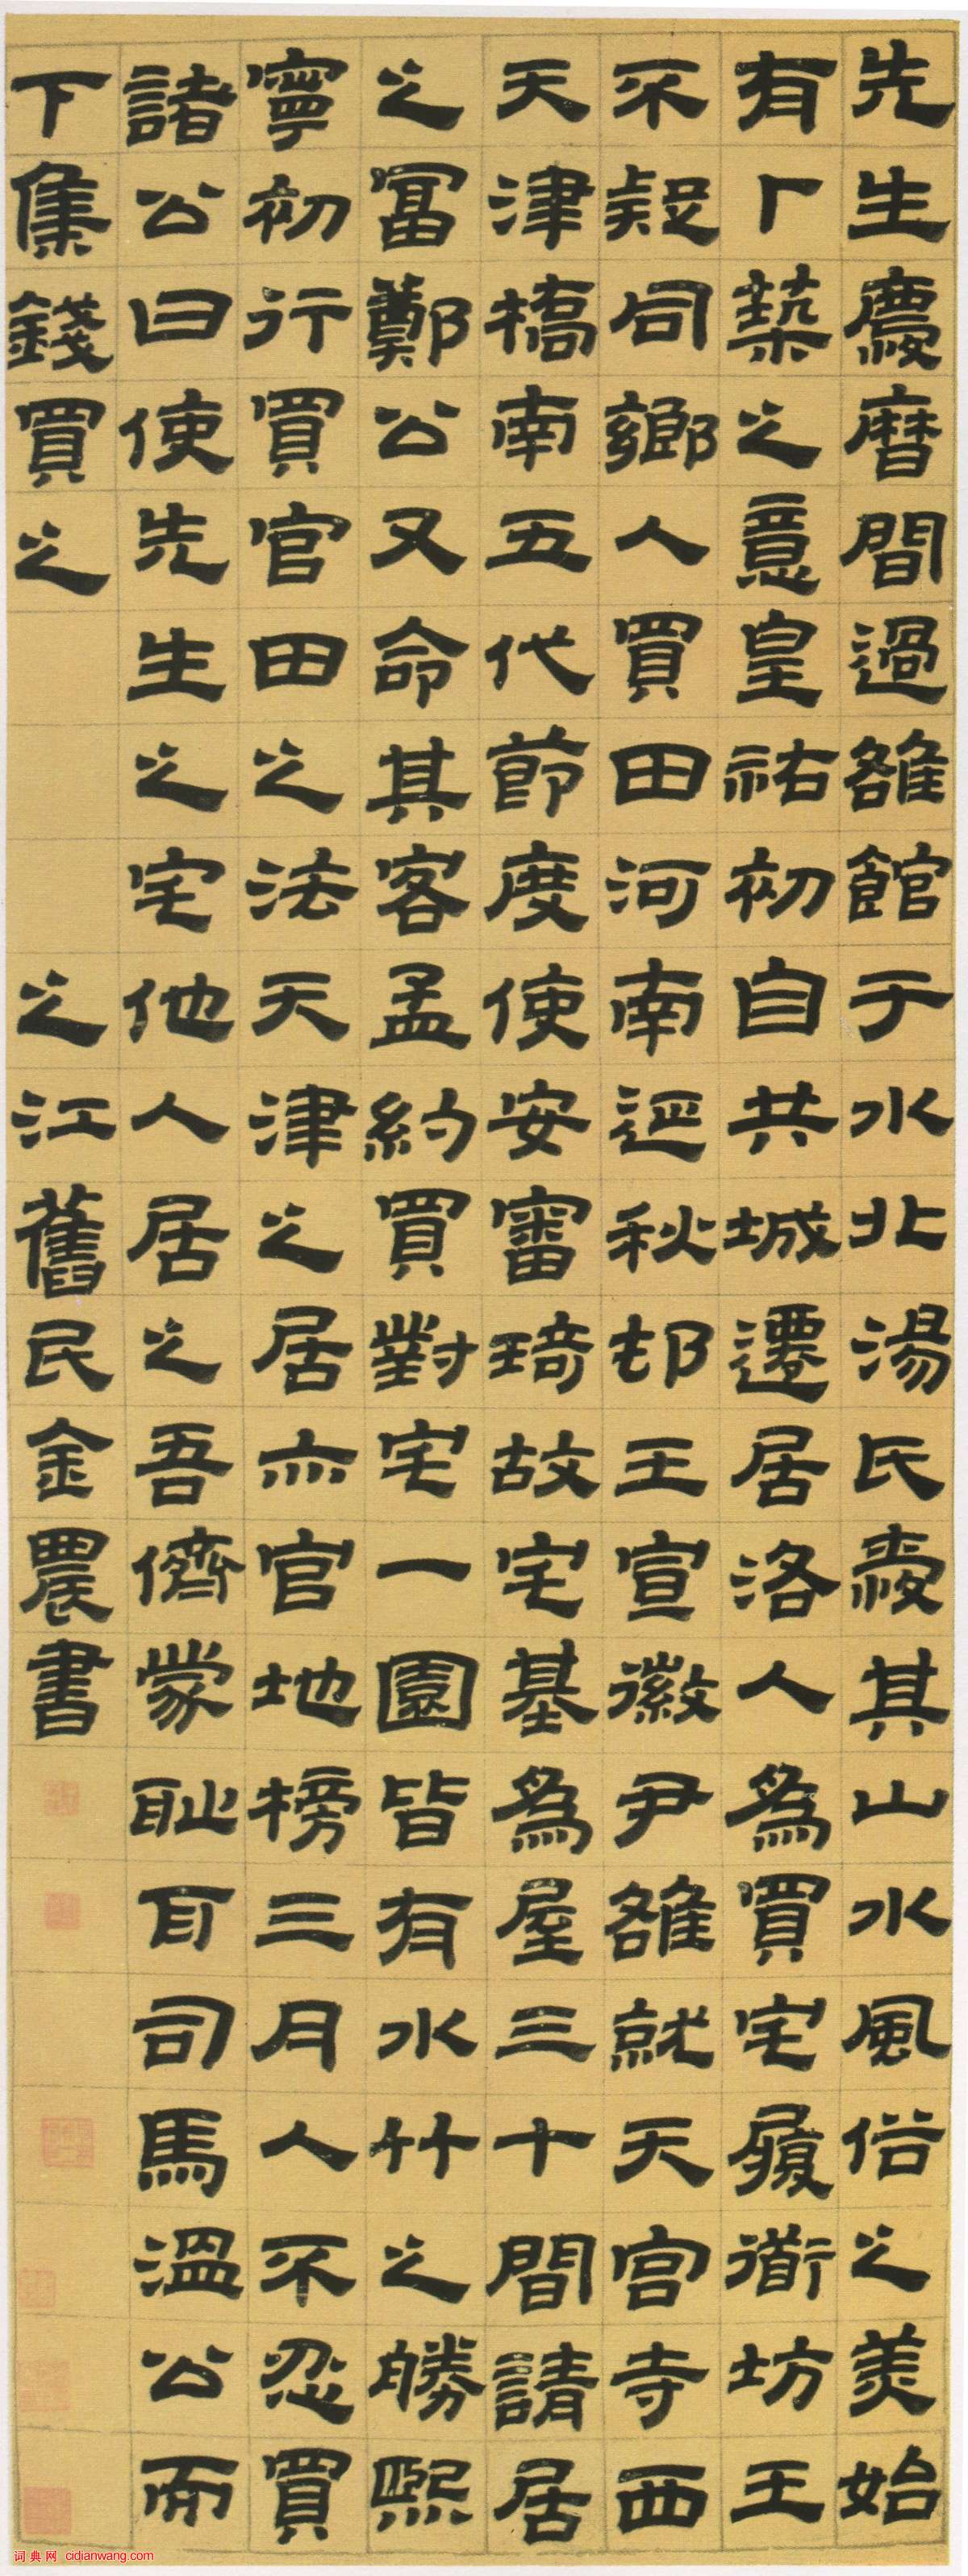 先生慶曆間過雒館于水北湯氏愛其山水風俗之美始
有厂築之意皇祐初自共城遷居洛人為買宅履衜坊王
不疑同鄉人買田河南延秋邨王宣徽尹雒就天宮寺西
天津橋南五代節度使安審琦故宅基為屋三十間請居
之富鄭公又命其客孟約買對宅一園皆有水竹之勝熙
寧初行買官田之法天津之居亦官地榜三月人不忍買
諸公曰使先生之宅他人居之吾儕蒙耻司馬溫公而
下集錢買之 之江舊民金農書
词典网 cidianwang.com